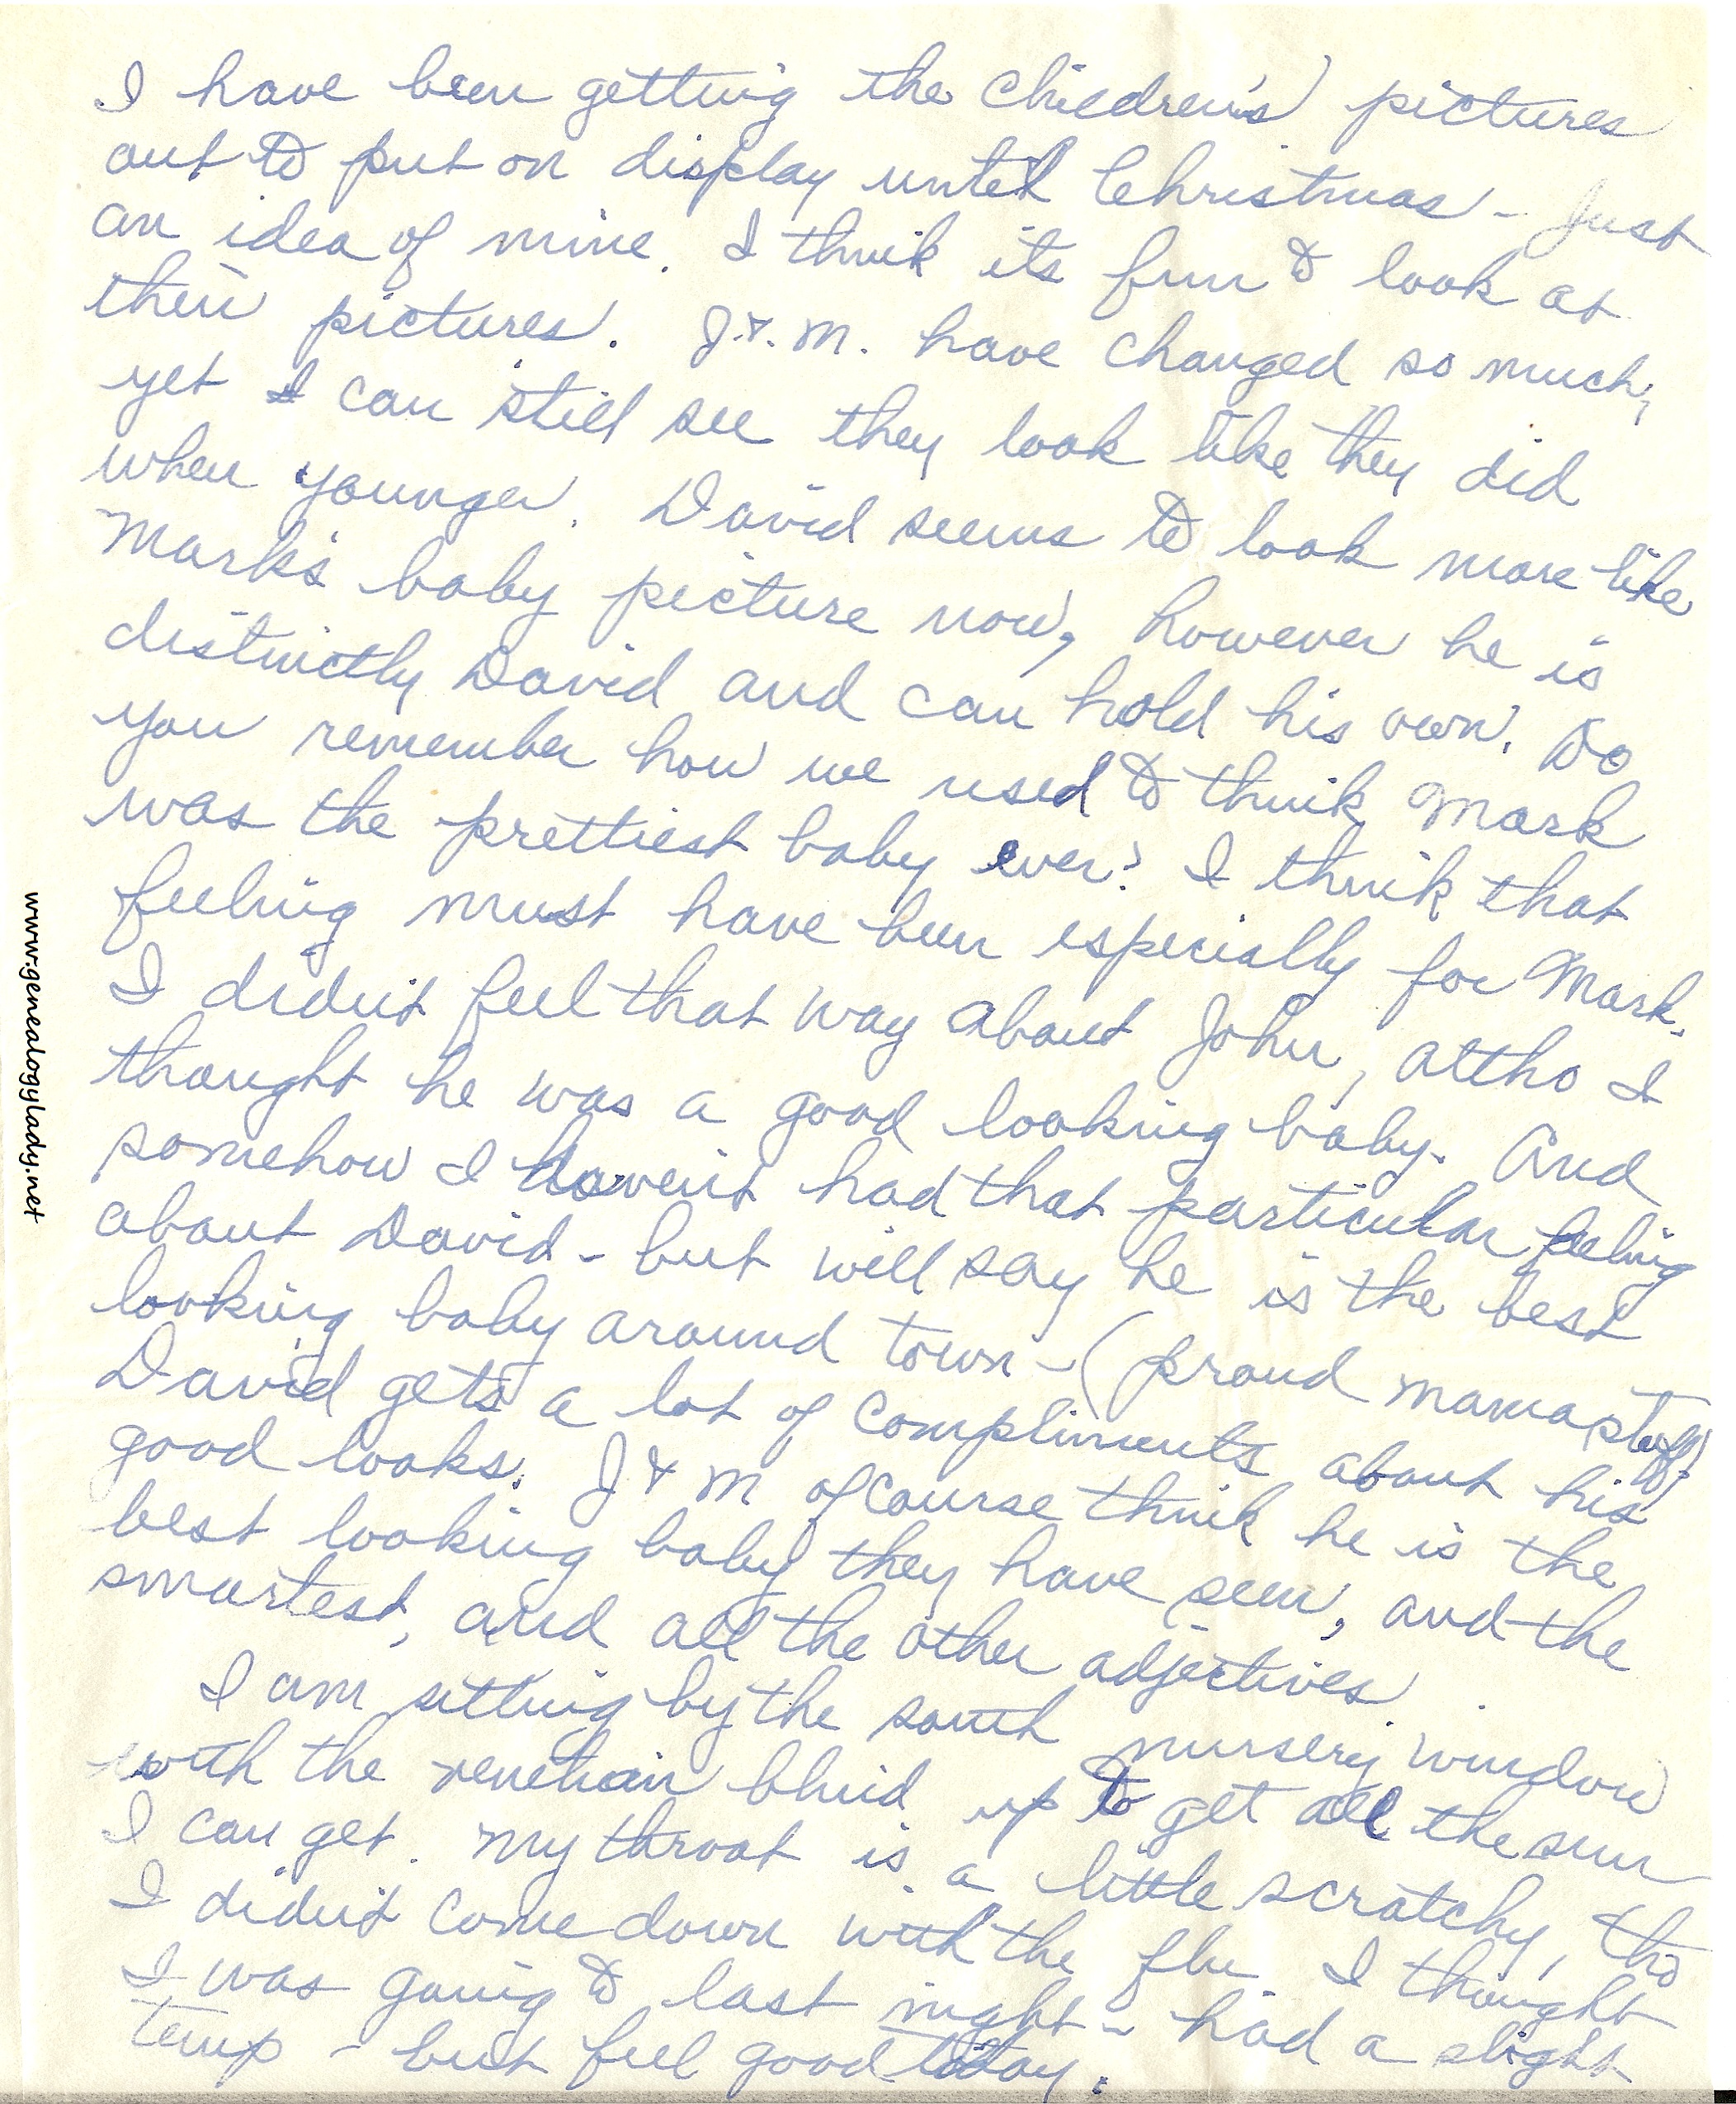 I have been getting the children's pictures
out to put on display until Christmas - Just
an idea of mine. I think its fun to look at
their pictures. J. & M. have changed so much,
yet I can still see they look like they did
when younger. David seems to look more like
Mark's baby picture now, however he is
distinctly David and can hold his own. Do
you remember how we used to think Mark
was the prettiest baby ever? I think that
feeling must have been especially for Mark.
I didn't feel that way about John, altho I
thought he was a good looking baby. And
somehow I haven't had that particular feeling
about David - but will say he is the best
looking baby around town - (proud mama stuff)
David gets a lot of compliments about his
good looks. J & M of course think he is the
best looking baby they have seen, and the
smartest, and all the other adjectives.
I am sitting by the south nursery window
with the venetian blind up to get all the sun
I can get. My throat is a little scratchy, tho
I didn't come down with the flu I thought
I was going to last night - had a slight
temp - but feel good today.
www.genealogylady.net